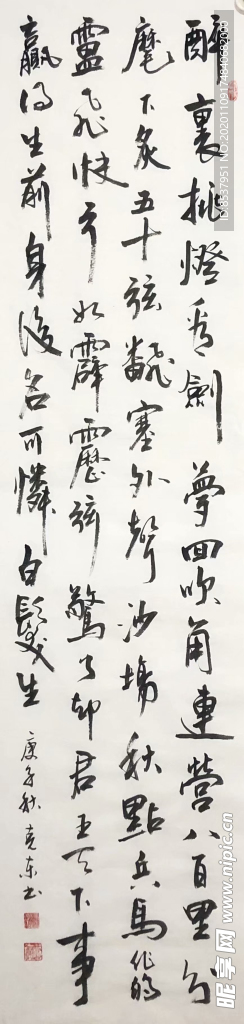 醉裏挑燈看劍夢回吹角連營八百里分
麾下炙五十弦飜塞外聲沙場秋點兵馬作的
盧飛快弓如霹靂弦驚了却君王天下事
贏得生前身後名可憐白髮生
庚子秋克東书
ID:8537951 NO.20201109174840682000
昵享网
nipic.com